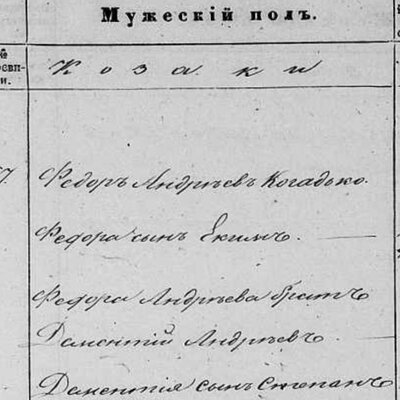 Мужескій полъ.
№
и.
Козаки
7.
Федоръ Андрѣевъ Когадько.
Федора сынъ Екимъ.
Федора Андрѣева братъ
Даментій Андрѣевъ
Даментія сынъ Степанъ